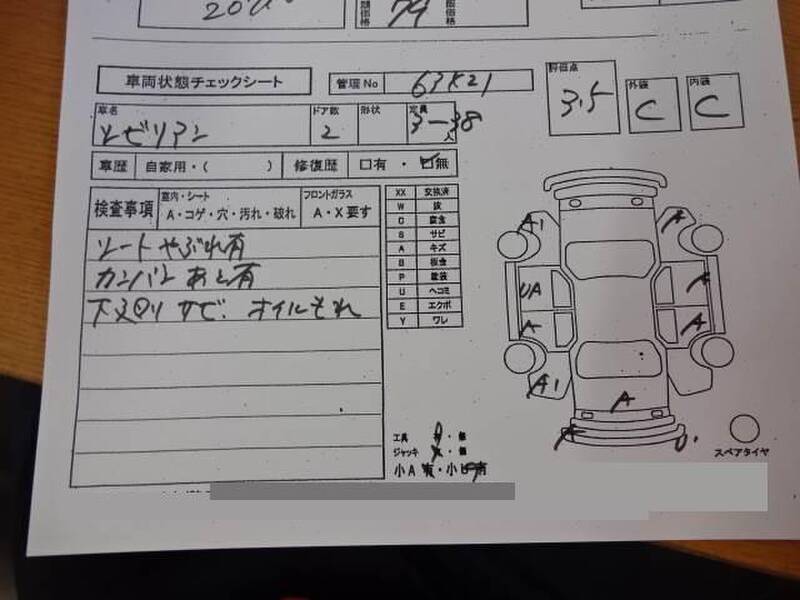 車両状態チェックシート
管理No 63K21
評価点 3.5
外装 C
内装 C
車名 シビリアン
ドア数 2
形状
定員 3-38人
車歴 自家用・( )
修復歴 □有・☑無
検査事項
室内・シート
A・コゲ・穴・汚れ・破れ
フロントガラス
A・X要す
シートやぶれ有
カンバンあと有
下廻りサビ. オイルもれ
XX 交換済
W 波
C 腐食
S サビ
A キズ
B 板金
P 塗装
U ヘコミ
E エクボ
Y ワレ
A1
A
UA
A
A
A
A1
A
A
U.
工具
ジャッキ
小A・小B
スペアタイヤ